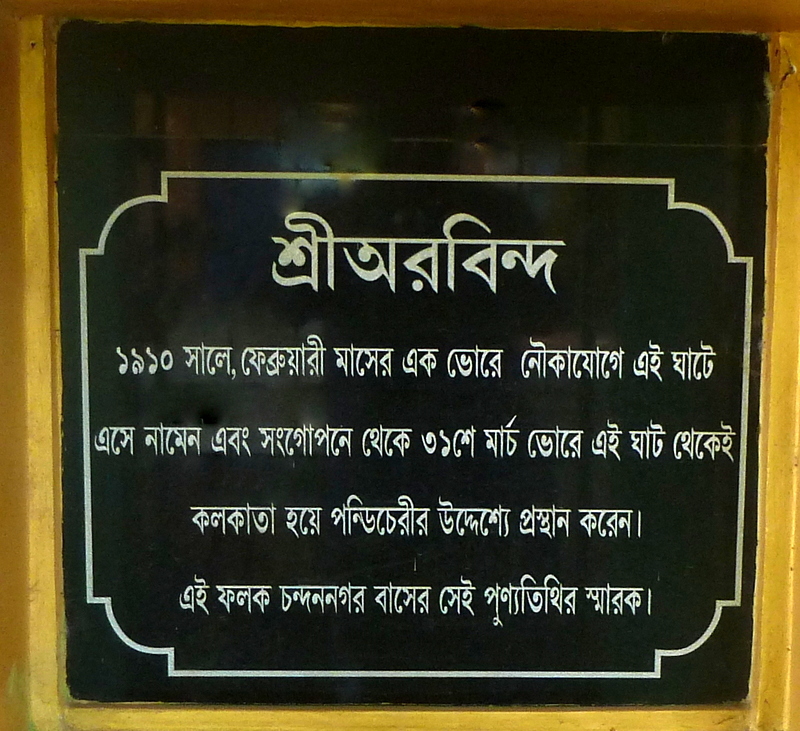 শ্রীঅরবিন্দ
১৯১০ সালে, ফেব্রুয়ারী মাসের এক ভোরে নৌকাযোগে এই ঘাটে
এসে নামেন এবং সংগোপনে থেকে ৩১শে মার্চ ভোরে এই ঘাট থেকেই
কলকাতা হয়ে পন্ডিচেরীর উদ্দেশ্যে প্রস্থান করেন।
এই ফলক চন্দননগর বাসের সেই পুণ্যতিথির স্মারক।